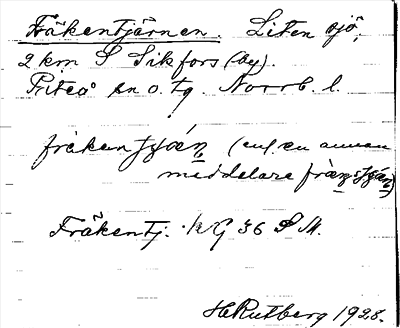 Fräkentjärnen. Liten sjö,
2 km S Sikfors (by).
Piteå sn o. tg. Norrb. l.
fräkentjän (enl. en annan
meddelare frängstjän)
Fräkentj. KG 36 S M.
H Rutberg 1928.